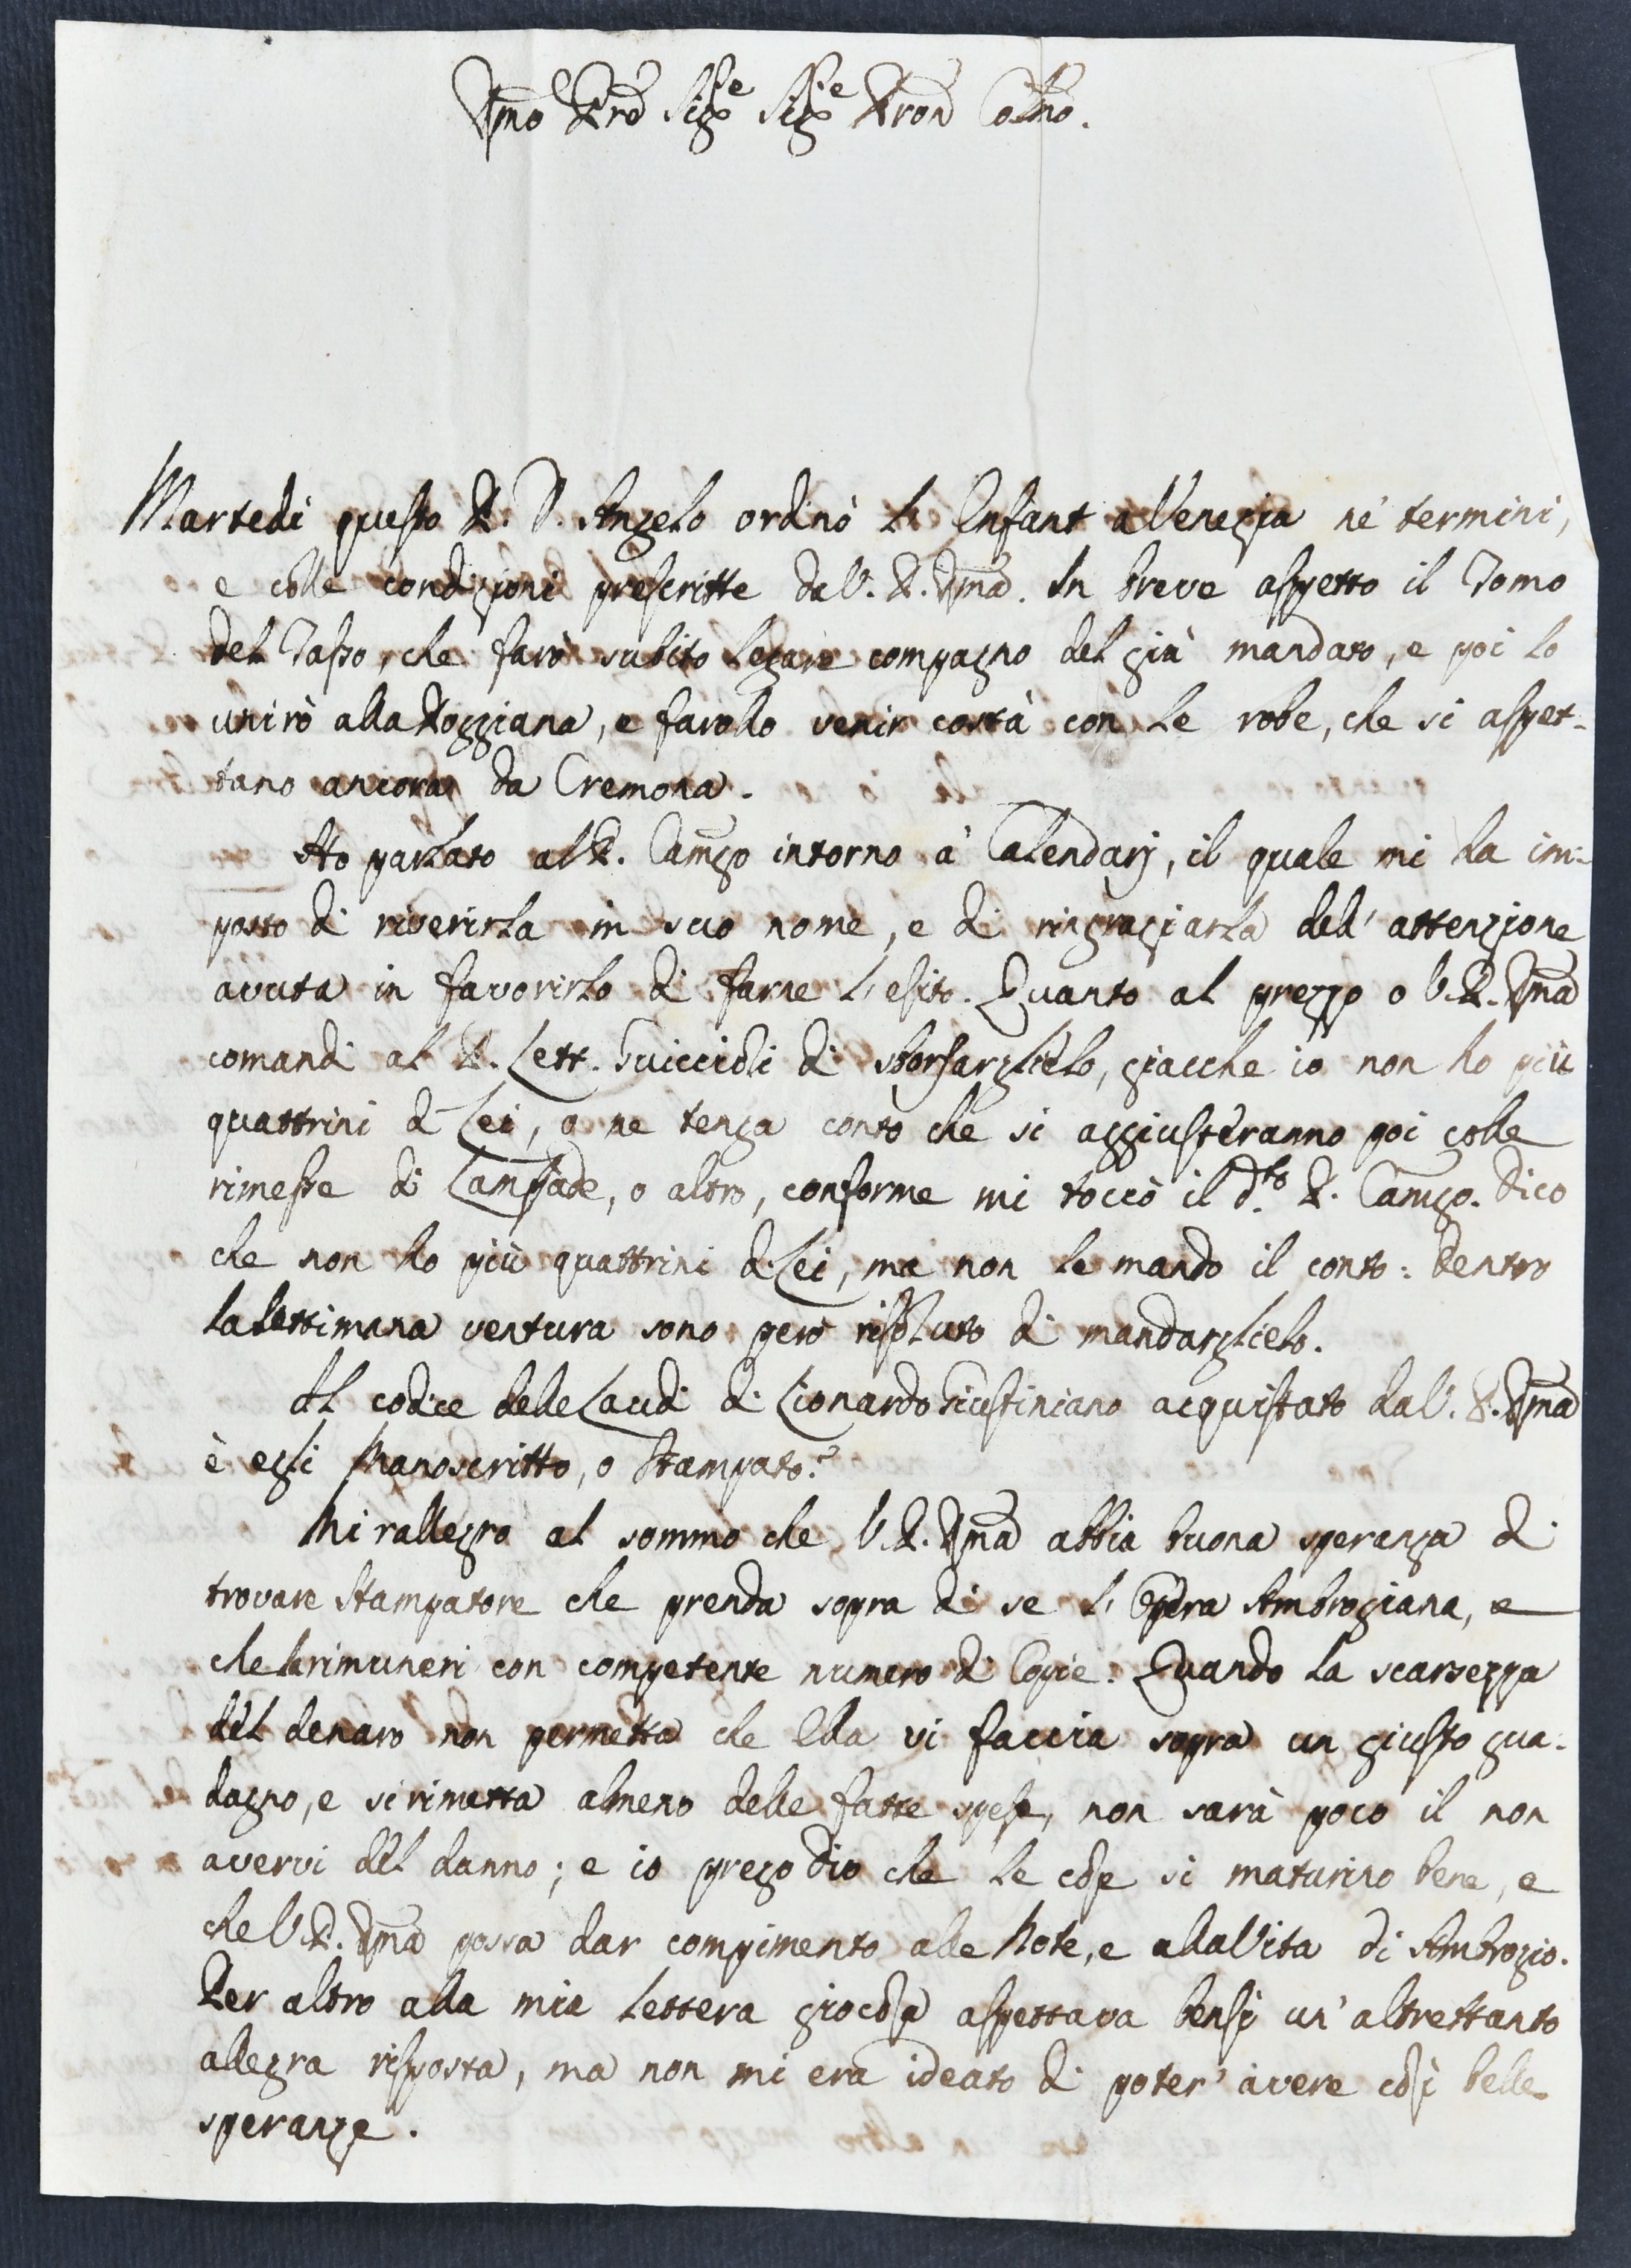 Illmo Rmo Sigre Sigre Pron Colmo.
Martedì questo P. D. Angelo ordinò l'Enfant a Venezia ne' termini,
e colle condizioni prescritte da V. P. Illma. In breve aspetto il Tomo
del Tasso, che farò subito legare compagno del già mandato, e poi lo
unirò alla Poggiana, e farollo venir costà con le robe, che si aspet-
tano ancora da Cremona.
Ho parlato al P. Camgo intorno a' Calendarj, il quale mi ha im-
posto di riverirla in suo nome, e di ringraziarla dell'attenzione
avuta in favorirlo di farne l'esito. Quanto al prezzo o V. P. Illma
comandi al P. Lett. Guiccioli di sborsarglielo, giacche io non ho più
quattrini di Lei, o ne tenga conto che si aggiusteranno poi colle
rimesse di Lampade, o altro, conforme mi toccò il d.to P. Camgo. Dico
che non ho più quattrini di Lei, ma non le mando il conto: dentro
la settimana ventura sono però risoluto di mandarglielo.
Il codice delle Laudi di Lionardo Giustiniano acquistato da V. P. Illma
è egli Manoscritto, o Stampato?
Mi rallegro al sommo che V. P. Illma abbia buona speranza di
trovare Stampatore che prenda sopra di se l'Opera Ambrogiana, e
che la rimuneri con competente numero di Copie. Quando la scarsezza
del denaro non permetta che Ella vi faccia sopra un giusto gua-
dagno, e si rimetta almeno delle fatte spese, non sarà poco il non
avervi del danno; e io prego Dio che le cose si maturino bene, e
che V. P. Illma possa dar compimento alle Note, e alla Vita di Ambrogio.
Per altro alla mia lettera giocosa aspettava bensì un'altrettanto
allegra risposta, ma non mi era ideato di poter' avere così belle
speranze.